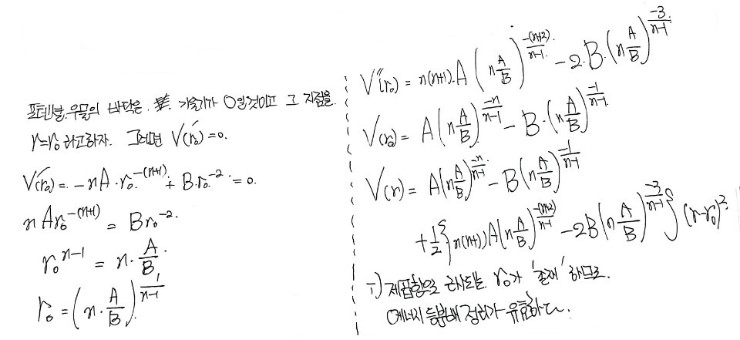 포텐셜 우물의 바닥은 기울기가 0일것이고 그 지점을
r=r₀ 라고하자. 그러면 V'(r₀)=0.
V'(r₀) = -nA·r₀^-(n+1) + B r₀^-2 = 0.
nAr₀^-(n+1) = Br₀^-2.
r₀^n-1 = n·A/B.
r₀ = (n·A/B)^1/n-1
V''(r₀) = n(n+1)·A(n A/B)^-(n+2)/n-1 - 2·B·(n A/B)^-3/n-1
V(r₀) = A(n A/B)^-n/n-1 - B·(n A/B)^-1/n-1
V(r) = A(n A/B)^-n/n-1 - B(n A/B)^-1/n-1
+ 1/2{n(n+1)A(n A/B)^-(n+2)/n-1 - 2B(n A/B)^-3/n-1}(r-r₀)².
∴) 제곱항으로 근사되는 r₀가 '존재' 하므로
에너지 등분배 정리가 유효하다.